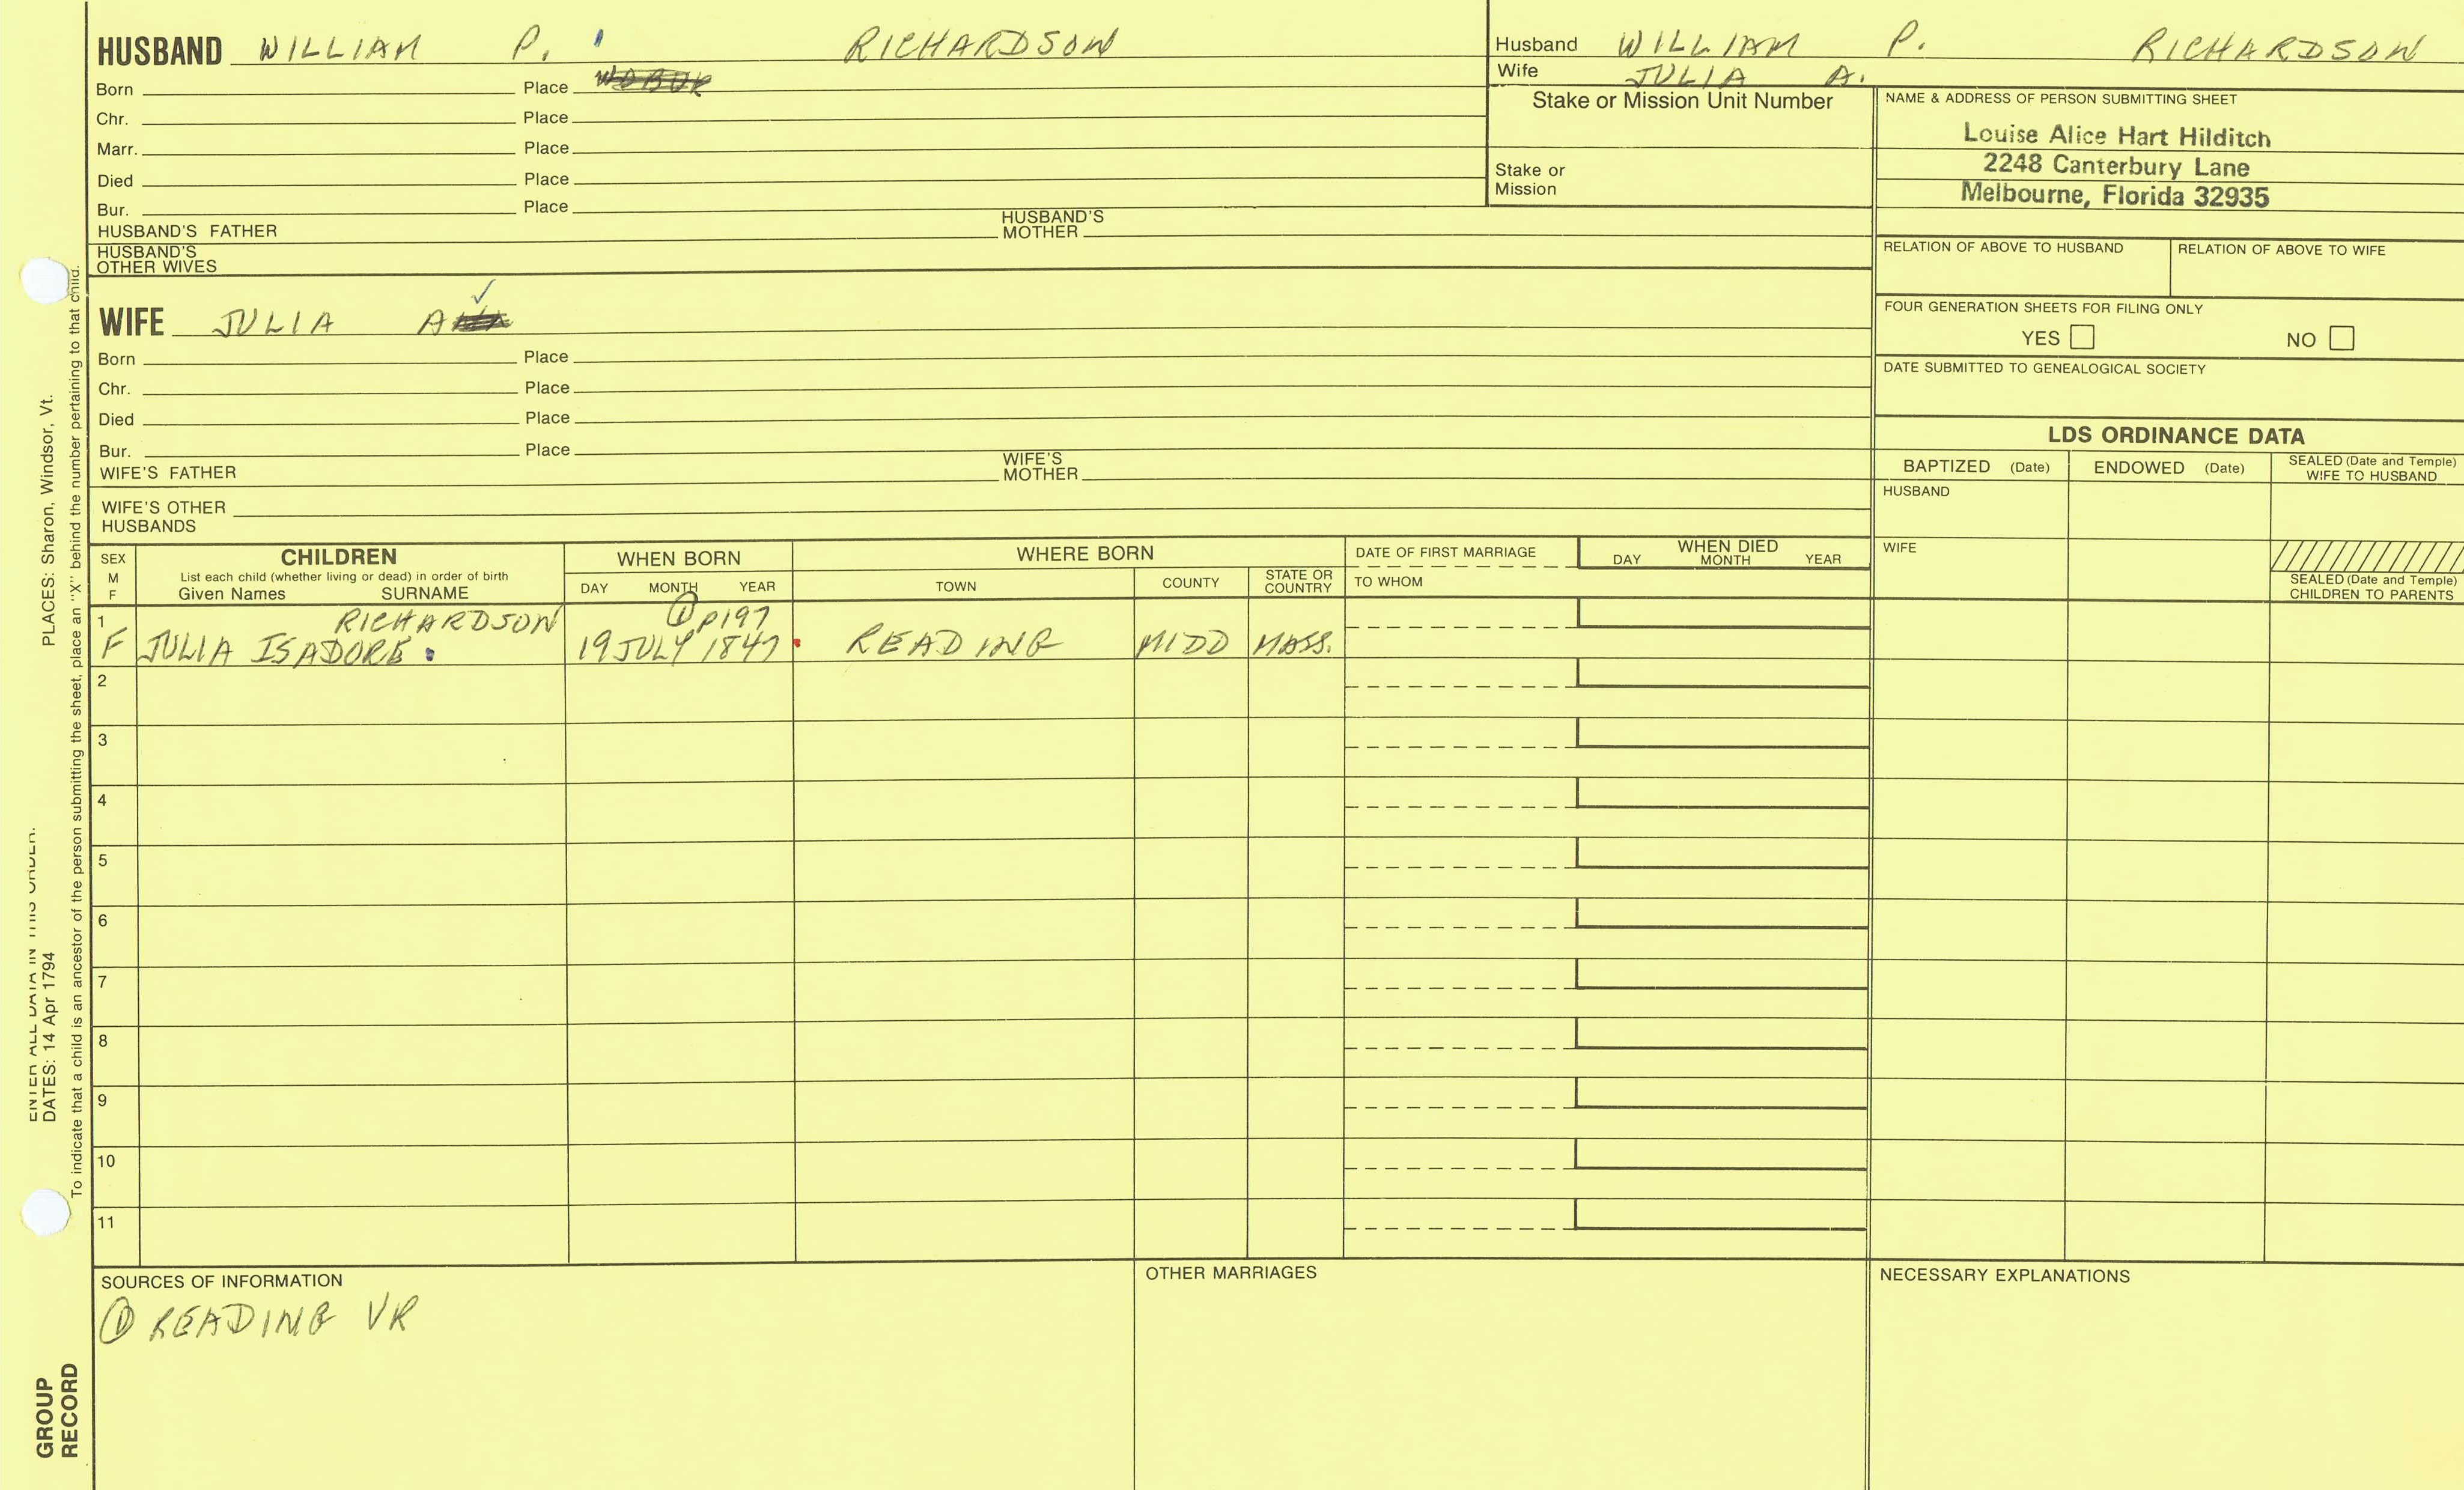 HUSBAND WILLIAM P. RICHARDSON
Born Place
Chr. Place
Marr. Place
Died Place
Bur. Place
HUSBAND'S FATHER HUSBAND'S MOTHER
HUSBAND'S OTHER WIVES
Husband WILLIAM P. RICHARDSON
Wife JULIA A.
Stake or Mission Unit Number
Stake or
Mission
NAME & ADDRESS OF PERSON SUBMITTING SHEET
Louise Alice Hart Hilditch
2248 Canterbury Lane
Melbourne, Florida 32935
RELATION OF ABOVE TO HUSBAND RELATION OF ABOVE TO WIFE
FOUR GENERATION SHEETS FOR FILING ONLY
YES NO
DATE SUBMITTED TO GENEALOGICAL SOCIETY
WIFE JULIA A
Born Place
Chr. Place
Died Place
Bur. Place
WIFE'S FATHER WIFE'S MOTHER
WIFE'S OTHER
HUSBANDS
LDS ORDINANCE DATA
BAPTIZED (Date) ENDOWED (Date) SEALED (Date and Temple) WIFE TO HUSBAND
HUSBAND
WIFE
SEALED (Date and Temple)
CHILDREN TO PARENTS
SEX M F
CHILDREN
List each child (whether living or dead) in order of birth
Given Names SURNAME
WHEN BORN
DAY MONTH YEAR
WHERE BORN
TOWN COUNTY STATE OR COUNTRY
DATE OF FIRST MARRIAGE
TO WHOM
WHEN DIED
DAY MONTH YEAR
1 RICHARDSON ① P197
F JULIA ISADORE 19 JULY 1847 READING MIDD MASS.
2
3
4
5
6
7
8
9
10
11
SOURCES OF INFORMATION
① READING VR
OTHER MARRIAGES
NECESSARY EXPLANATIONS
ENTER ALL DATA IN THIS ORDER:
DATES: 14 Apr 1794 PLACES: Sharon, Windsor, Vt.
To indicate that a child is an ancestor of the person submitting the sheet, place an "X" behind the number pertaining to that child.
GROUP
RECORD